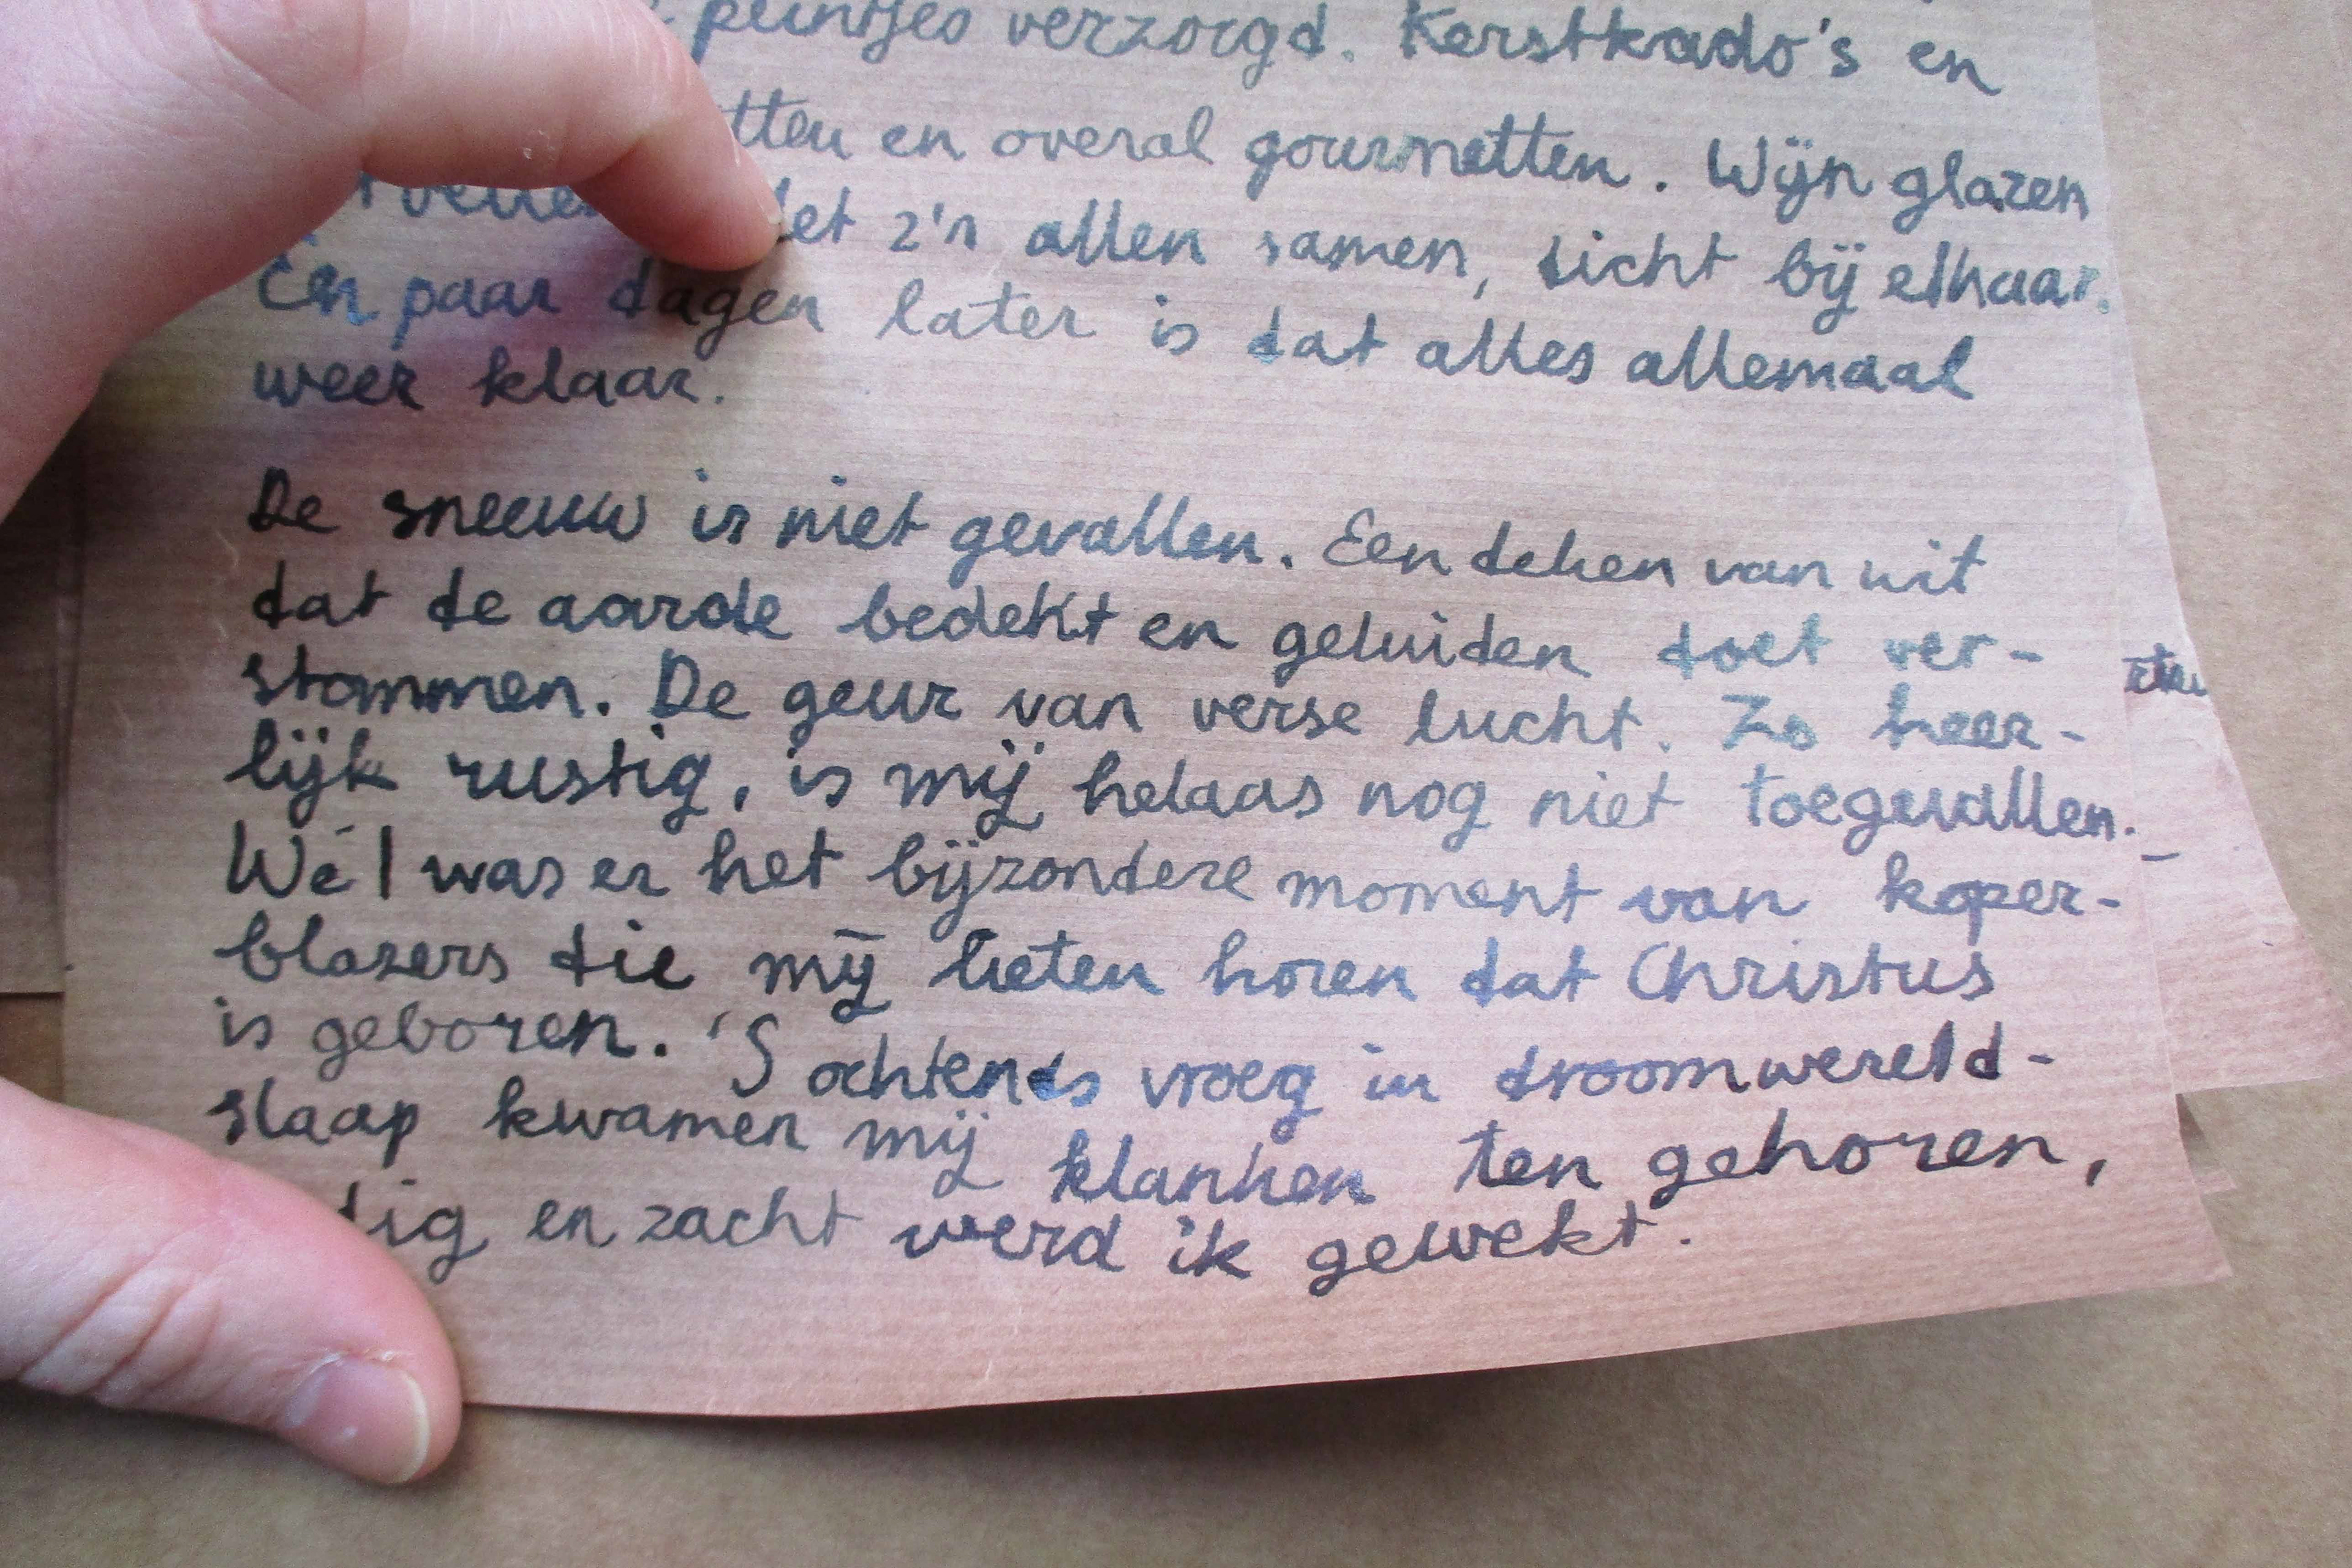 puntjes verzorgd. Kerstkado's en
en overal gourmetten. Wijn glazen
z'n allen samen, dicht bij elkaar.
Een paar dagen later is dat alles allemaal
weer klaar.
De sneeuw is niet gevallen. Een deken van wit
dat de aarde bedekt en geluiden doet ver-
stommen. De geur van verse lucht. Zo heer-
lijk rustig, is mij helaas nog niet toegevallen.
Wél was er het bijzondere moment van koper-
blazers die mij lieten horen dat Christus
is geboren. 'S ochtends vroeg in droomwereld-
slaap kwamen mij klanken ten gehoren,
en zacht werd ik gewekt.